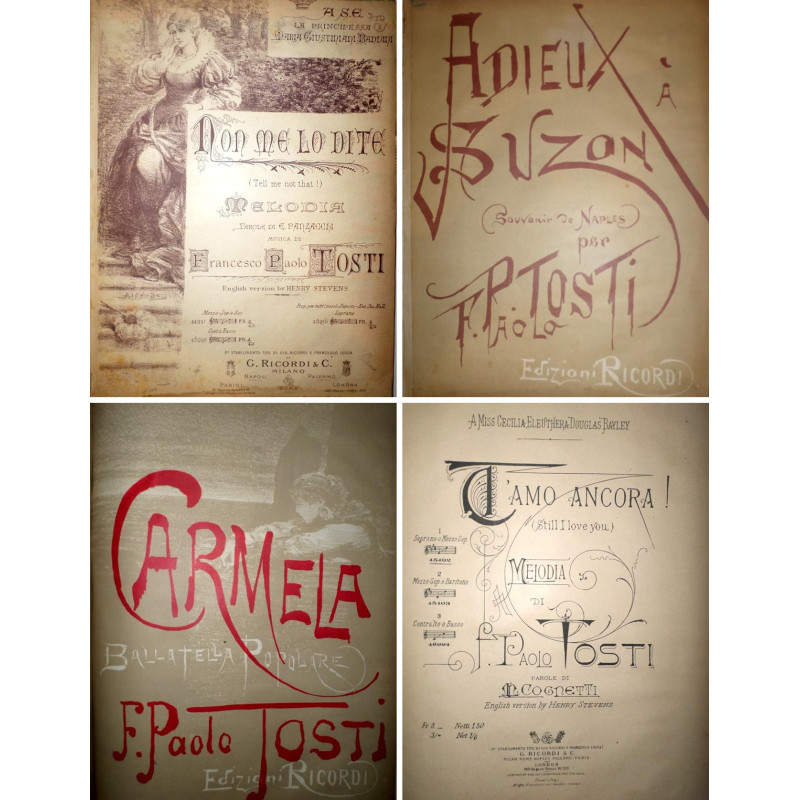 A S.E.
LA PRINCIPESSA
MARIA GIUSTINIANI BANDINI
NON ME LO DITE
(Tell me not that!)
MELODIA
PAROLE DI E. PANZACCHI
MUSICA DI
Francesco Paolo TOSTI
English version by HENRY STEVENS
Mezzo-Sop. o Bar.
Soprano
G. RICORDI & C.
MILANO
NAPOLI
ROMA
PALERMO
PARIGI
LONDRA
ADIEUX À
SUZON
(Souvenir de NAPLES)
per
F. PAOLO TOSTI
Edizioni RICORDI
CARMELA
BALLATELLA POPOLARE
F. Paolo TOSTI
Edizioni RICORDI
A MISS CECILIA ELEUTHERA DOUGLAS BAYLEY
T'AMO ANCORA!
(Still I love you,)
1
Soprano o Mezzo Sop.
48402
2
Mezzo-Sop. o Baritono
48403
3
Contralto o Basso
MELODIA
DI
F. PAOLO TOSTI
PAROLE DI
COGNETTI
English version by HENRY STEVENS
G. RICORDI & C.
LONDON